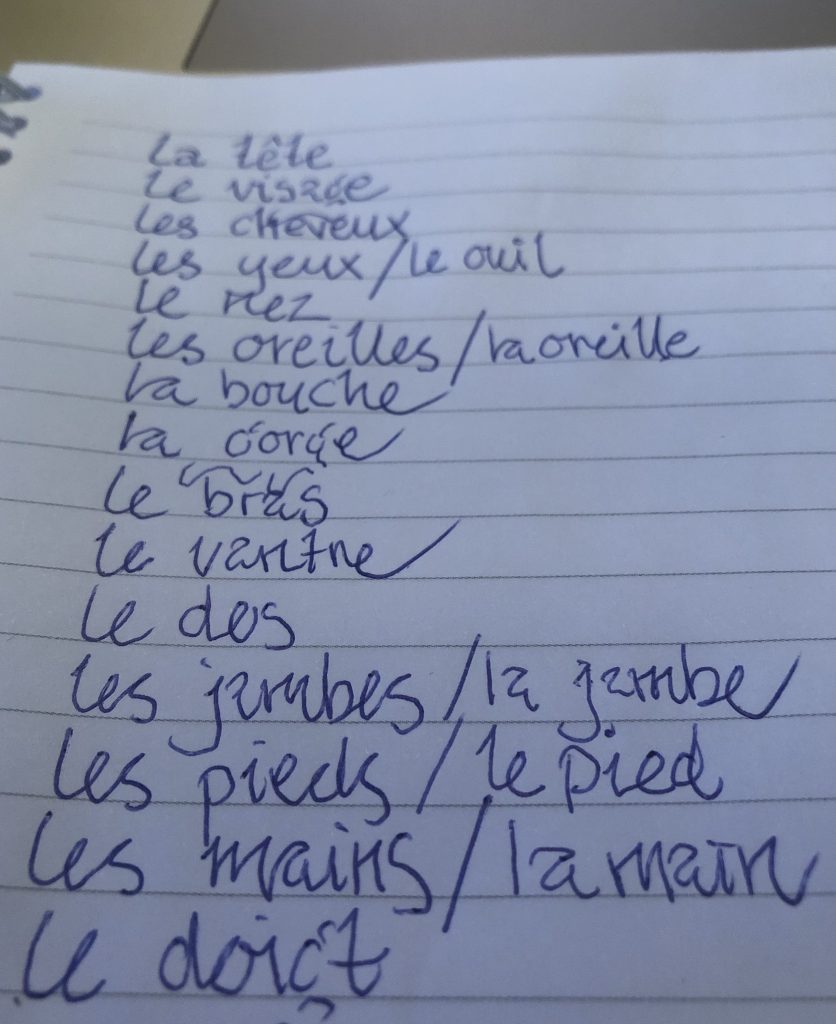 la tête
le visage
les cheveux
les yeux/le ouil
le nez
les oreilles/la oreille
la bouche
la gorge
le bras
le vantre
le dos
les jambes/la jambe
les pieds/le pied
les mains/la main
le doigt